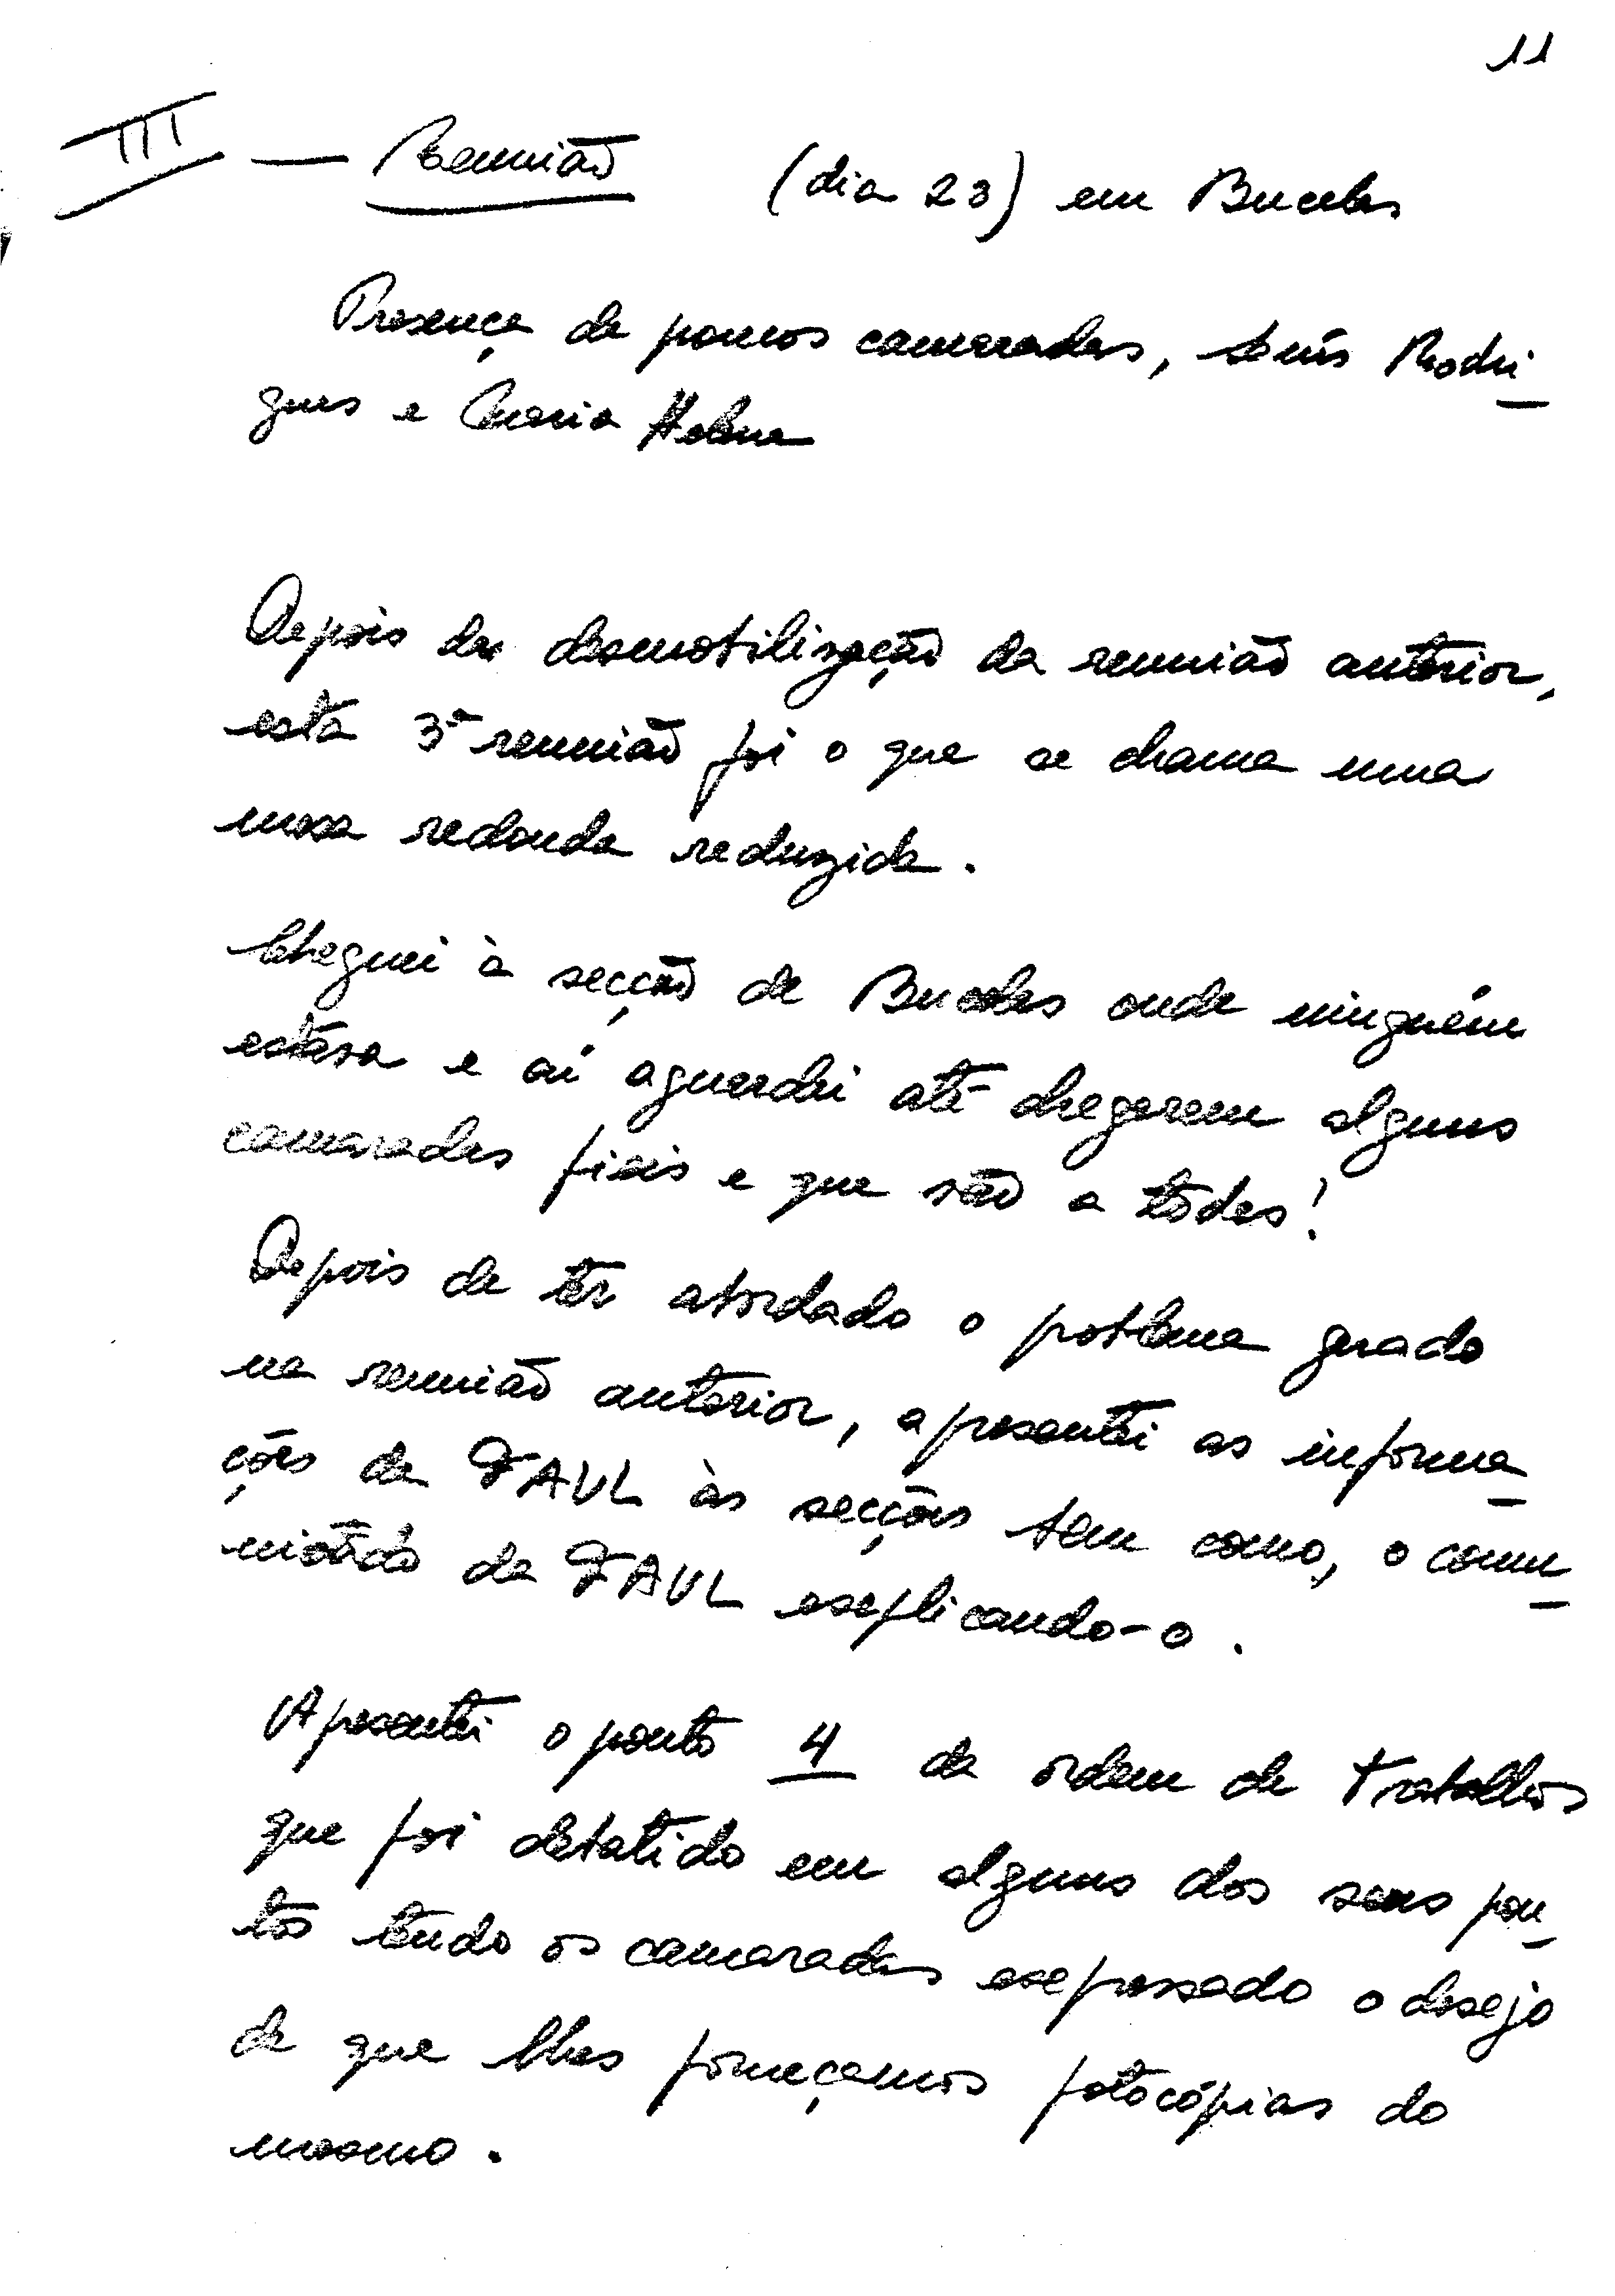 11
III — Reunião (dia 23) em Bucelas
Presença de poucos camaradas, Luís Rodri-
gues e Maria Helena
Depois da desmobilização da reunião anterior,
esta 3ª reunião foi o que se chama uma
mesa redonda reduzida.
Cheguei à secção de Bucelas onde ninguém
estava e aí aguardei até chegarem alguns
camaradas fieis e que são a todes!
Depois de ter abordado o problema gerado
na reunião anterior, apresentei as informa-
ções da FAUL às secções bem como, o comu-
nicado da FAUL explicando-o.
Apresentei o ponto 4 da ordem de trabalhos
que foi debatido em alguns dos seus pon-
tos tendo os camaradas expressado o desejo
de que lhes forneçamos fotocópias do
mesmo.